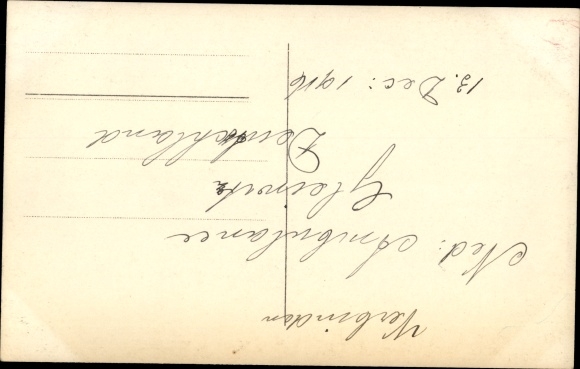 Verbinden
Ned: Ambulance
Gleiwitz
Deutschland
13. Dec: 1916